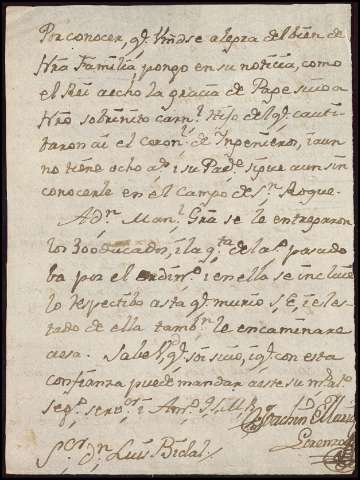 Por conocer, q.e Vmd se alegra del bien de
Nra Familia, pongo en su noticia, como
el Rei a echo la gracia de Page suio a
Nro sobrinito carn.l Hijo del q.e cauti
baron al coron.l de Ingenieros, i aun
no tiene ocho a.s i su Pad.e sigue aun sin
conocerle en el Campo de S.n Roque.
A d.n Man.l se le entregarron
los 300 ducados, i la q.ta de la pasado
ba por el ordin.o i en ella se incluie
lo respectibo asta q.e murio S.E. i el es-
tado de ella tamb.n le encaminare
a esa. Sabe V. q.e soi suio, i q.e con esta
confianza puede mandar a este su m.s
seg.o serv.or i Am.o
Joachin
Lorenzo
S.or d.n Luis Bidal